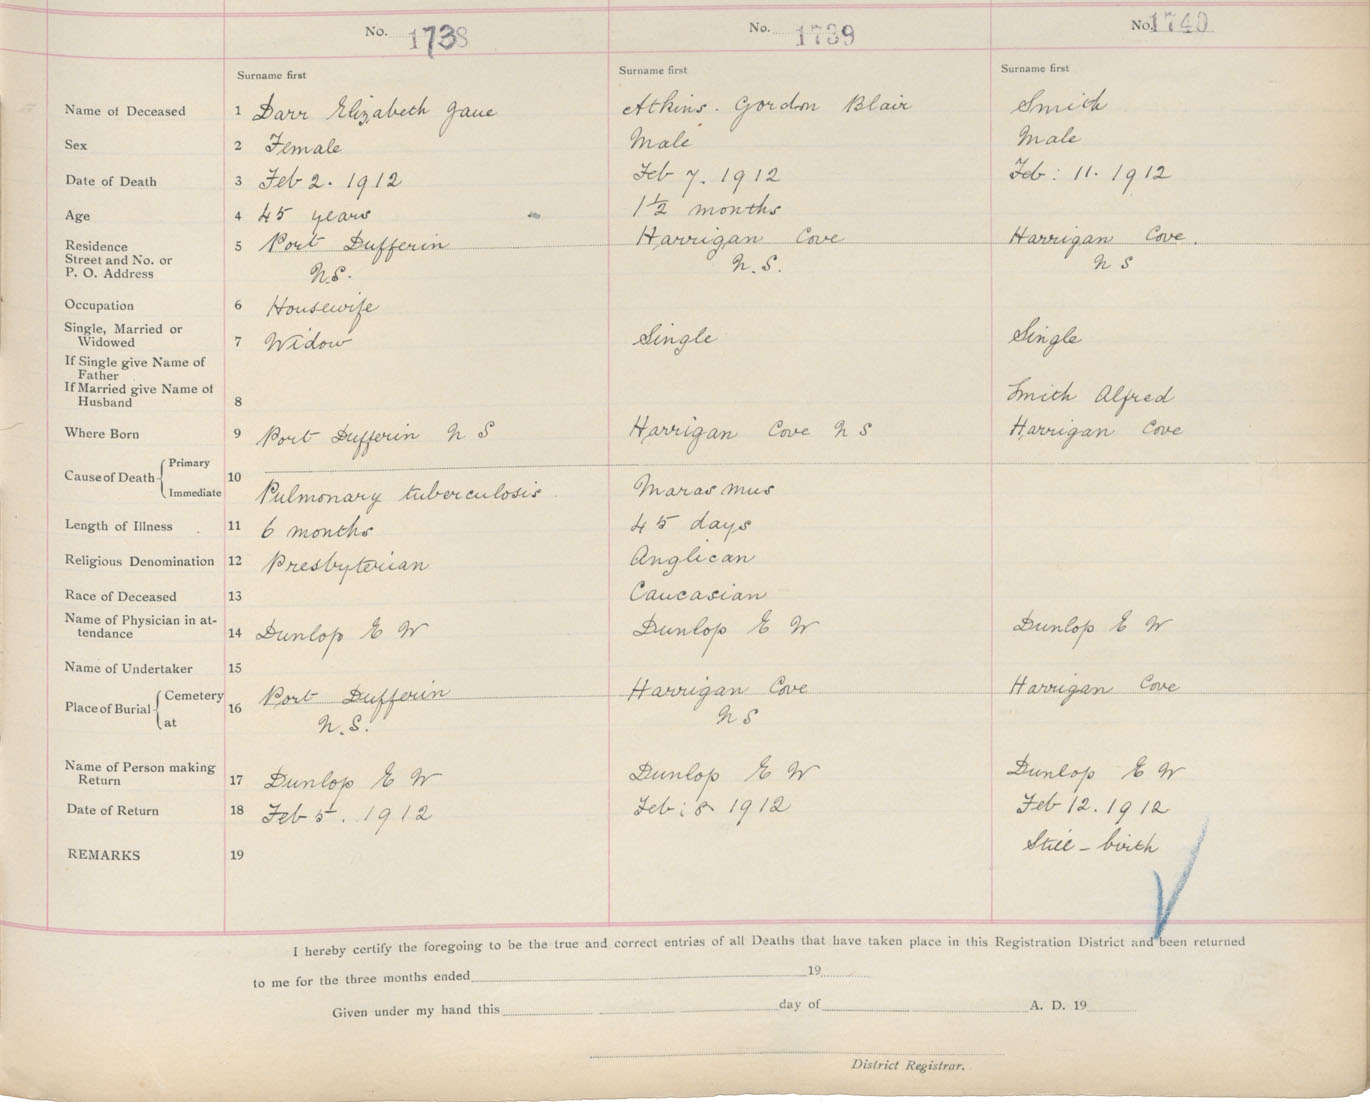 No. 1738 No. 1739 No. 1740
Surname first Surname first Surname first
Name of Deceased 1 Darr Elizabeth Jane Atkins. Gordon Blair Smith
Sex 2 Female Male Male
Date of Death 3 Feb 2. 1912 Feb 7. 1912 Feb: 11. 1912
Age 4 45 years 1½ months
Residence 5 Port Dufferin Harrigan Cove Harrigan Cove.
Street and No. or
P. O. Address N.S. N.S. N S
Occupation 6 Housewife
Single, Married or
Widowed 7 Widow Single Single
If Single give Name of
Father
If Married give Name of
Husband 8 Smith Alfred
Where Born 9 Port Dufferin N S Harrigan Cove N S Harrigan Cove
Primary
Cause of Death 10
Immediate Pulmonary tuberculosis Marasmus
Length of Illness 11 6 months 45 days
Religious Denomination 12 Presbyterian Anglican
Race of Deceased 13 Caucasian
Name of Physician in at-
tendance 14 Dunlop E W Dunlop E W Dunlop E W
Name of Undertaker 15
Cemetery Port Dufferin Harrigan Cove Harrigan Cove
Place of Burial 16
at N.S. N S
Name of Person making
Return 17 Dunlop E W Dunlop E W Dunlop E W
Date of Return 18 Feb 5. 1912 Feb: 8 1912 Feb 12. 1912
REMARKS 19 Still - birth
I hereby certify the foregoing to be the true and correct entries of all Deaths that have taken place in this Registration District and been returned
to me for the three months ended 19
Given under my hand this day of A. D. 19
District Registrar.